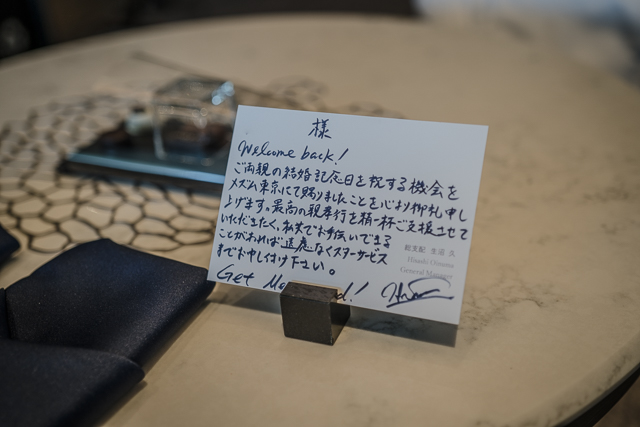 様
Welcome back!
ご両親の結婚記念日を祝する機会を
メズム東京にて賜りましたことを心より御礼申し
上げます。最高の親孝行を精一杯ご支援させて
いただきたく、私共でお手伝いできる
ことがあれば遠慮なくスターサービス
までお申し付け下さい。
総支配 生沼 久
Hisashi Oinuma
General Manager
Get